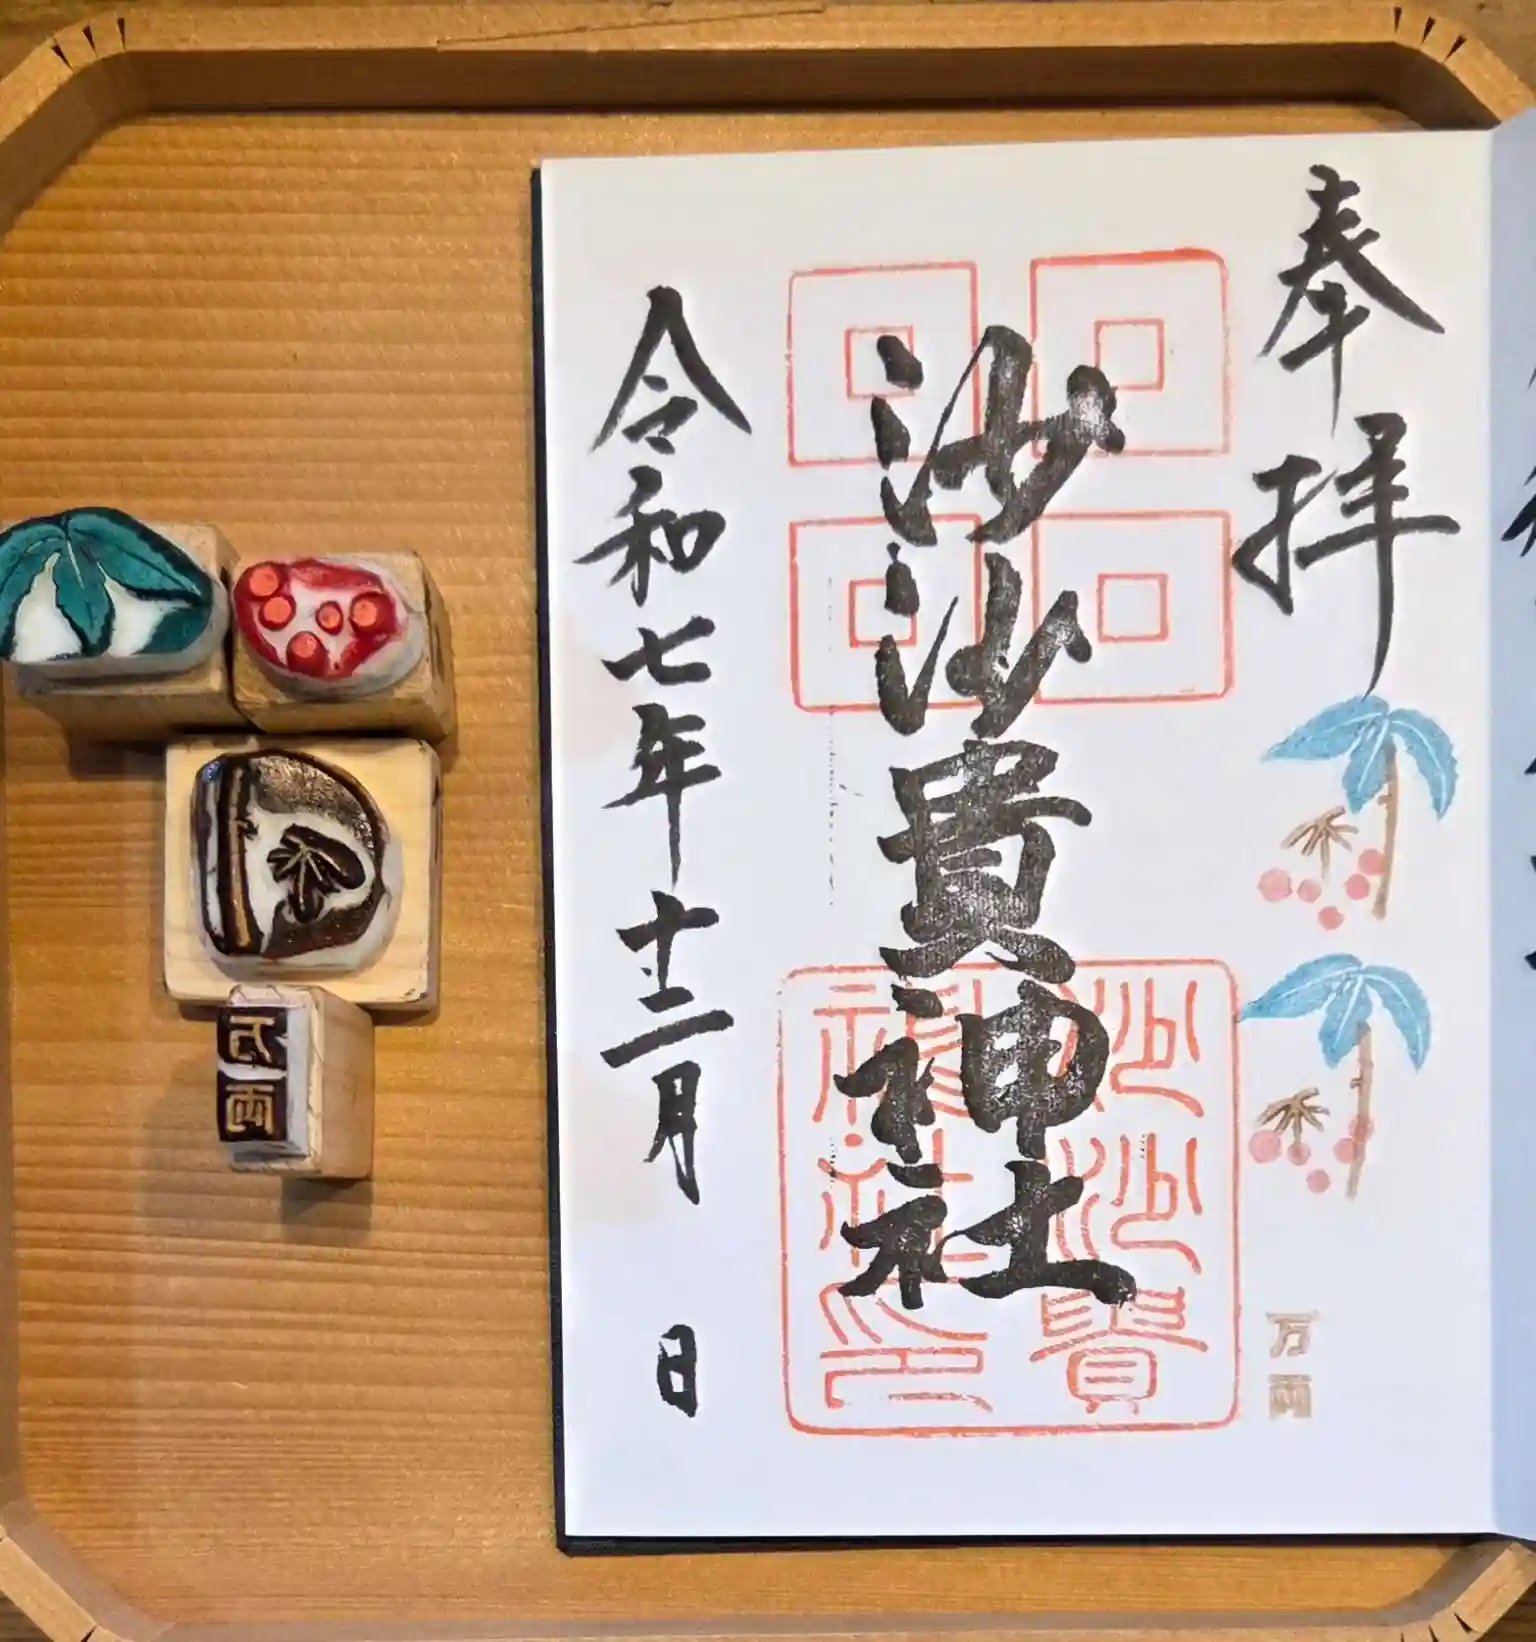 奉拝
沙沙貴神社
沙沙貴
神社之印
令和七年十二月　日
万両
万両